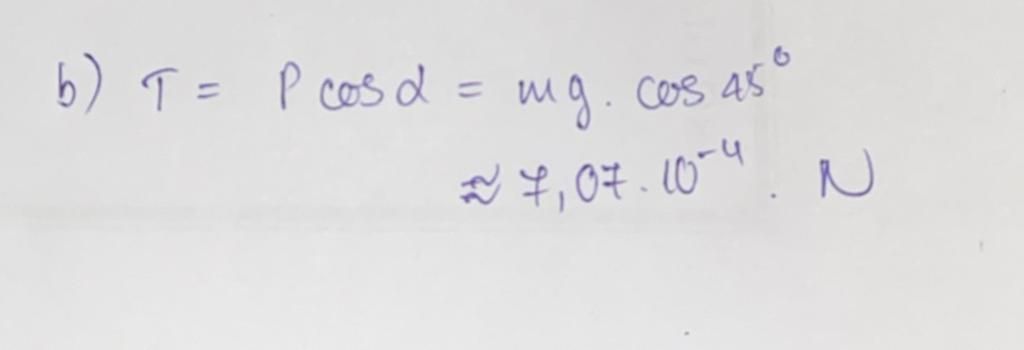 b) T = P cos α = mg . cos 45°
≈ 7,07 . 10⁻⁴ . N